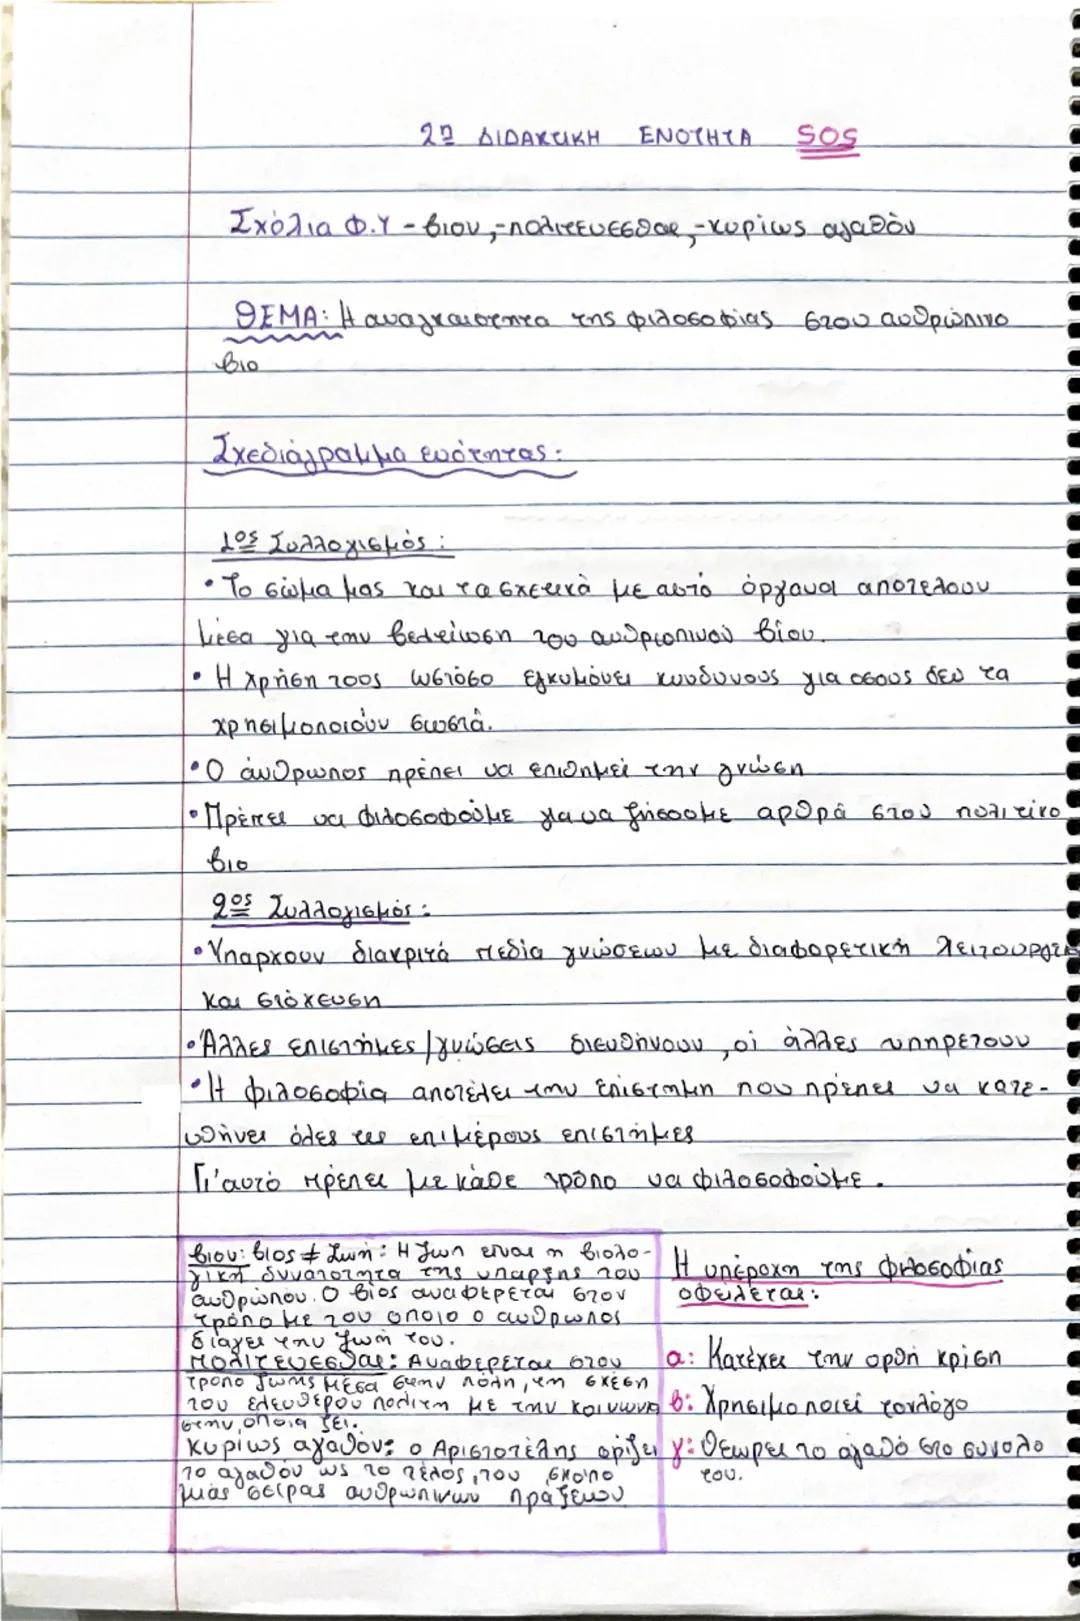 2η ΔΙΔΑΚΤΙΚΗ ΕΝΟΤΗΤΑ SOS
Σχόλια Φ.Υ - βιου, -πολιτευεσθαι, -κυρίως αγαθόν
ΘΕΜΑ: Η αναγκαιότητα της φιλοσοφίας στον ανθρώπινο
βιο
Σχεδιάγραμμα ενότητας:
1ος Συλλογισμός:
• Το σώμα μας και τα σχετικά με αυτό όργανα αποτελουν
μέσα για την βελτίωση του ανθρωπινού βίου.
• Η χρήση τους ωστόσο εγκυμόνει κινδυνους για οσους δεν τα
χρησιμοποιούν σωστά.
• Ο άνθρωπος πρέπει να επιθημεί την γνώση
• Πρέπει να φιλοσοφούμε για να ζήσουμε αρθρά στον πολιτίκο
βιο
2ος Συλλογισμός:
• Υπαρχουν διακριτά πεδία γνώσεων με διαφορετική λειτουργία
και στόχευση
• Άλλες επιστήμες/γνώσεις διευθήνουν, οι άλλες υπηρετουν
• Η φιλοσοφία αποτέλει την επίστημη που πρέπει να κατε-
υθήνει όλες τις επιμέρους επιστήμες
Γι'αυτό πρέπει με κάθε τρόπο να φιλοσοφούμε.
βιου: βιος ≠ ζωή: Η ζωη ειναι η βιολο-
γική δυνατοτητα της υπαρξης του
ανθρώπου. Ο βίος αναφερεται στον
τρόπο με τον οποιο ο ανθρωπος
διαγει την ζωή του.
πολιτευεσθαι: Αναφερεται στον
τροπο ζωης μέσα στην πόλη, τη σχέση
του ελευθέρου πολιτη με την κοινωνια
στην οποια ζει.
κυρίως αγαθον: ο Αριστοτέλης ορίζει
το αγαθόν ως το τέλος, τον σκοπο
μιας σειρας ανθρωπινων πραξεων
Η υπέροχη της φιλοσοφίας
οφειλεται:
α: Κατέχει την ορθή κρίση
β: Χρησιμοποιεί τον λόγο
γ: Θεωρει το αγαθό στο συνολο
του.